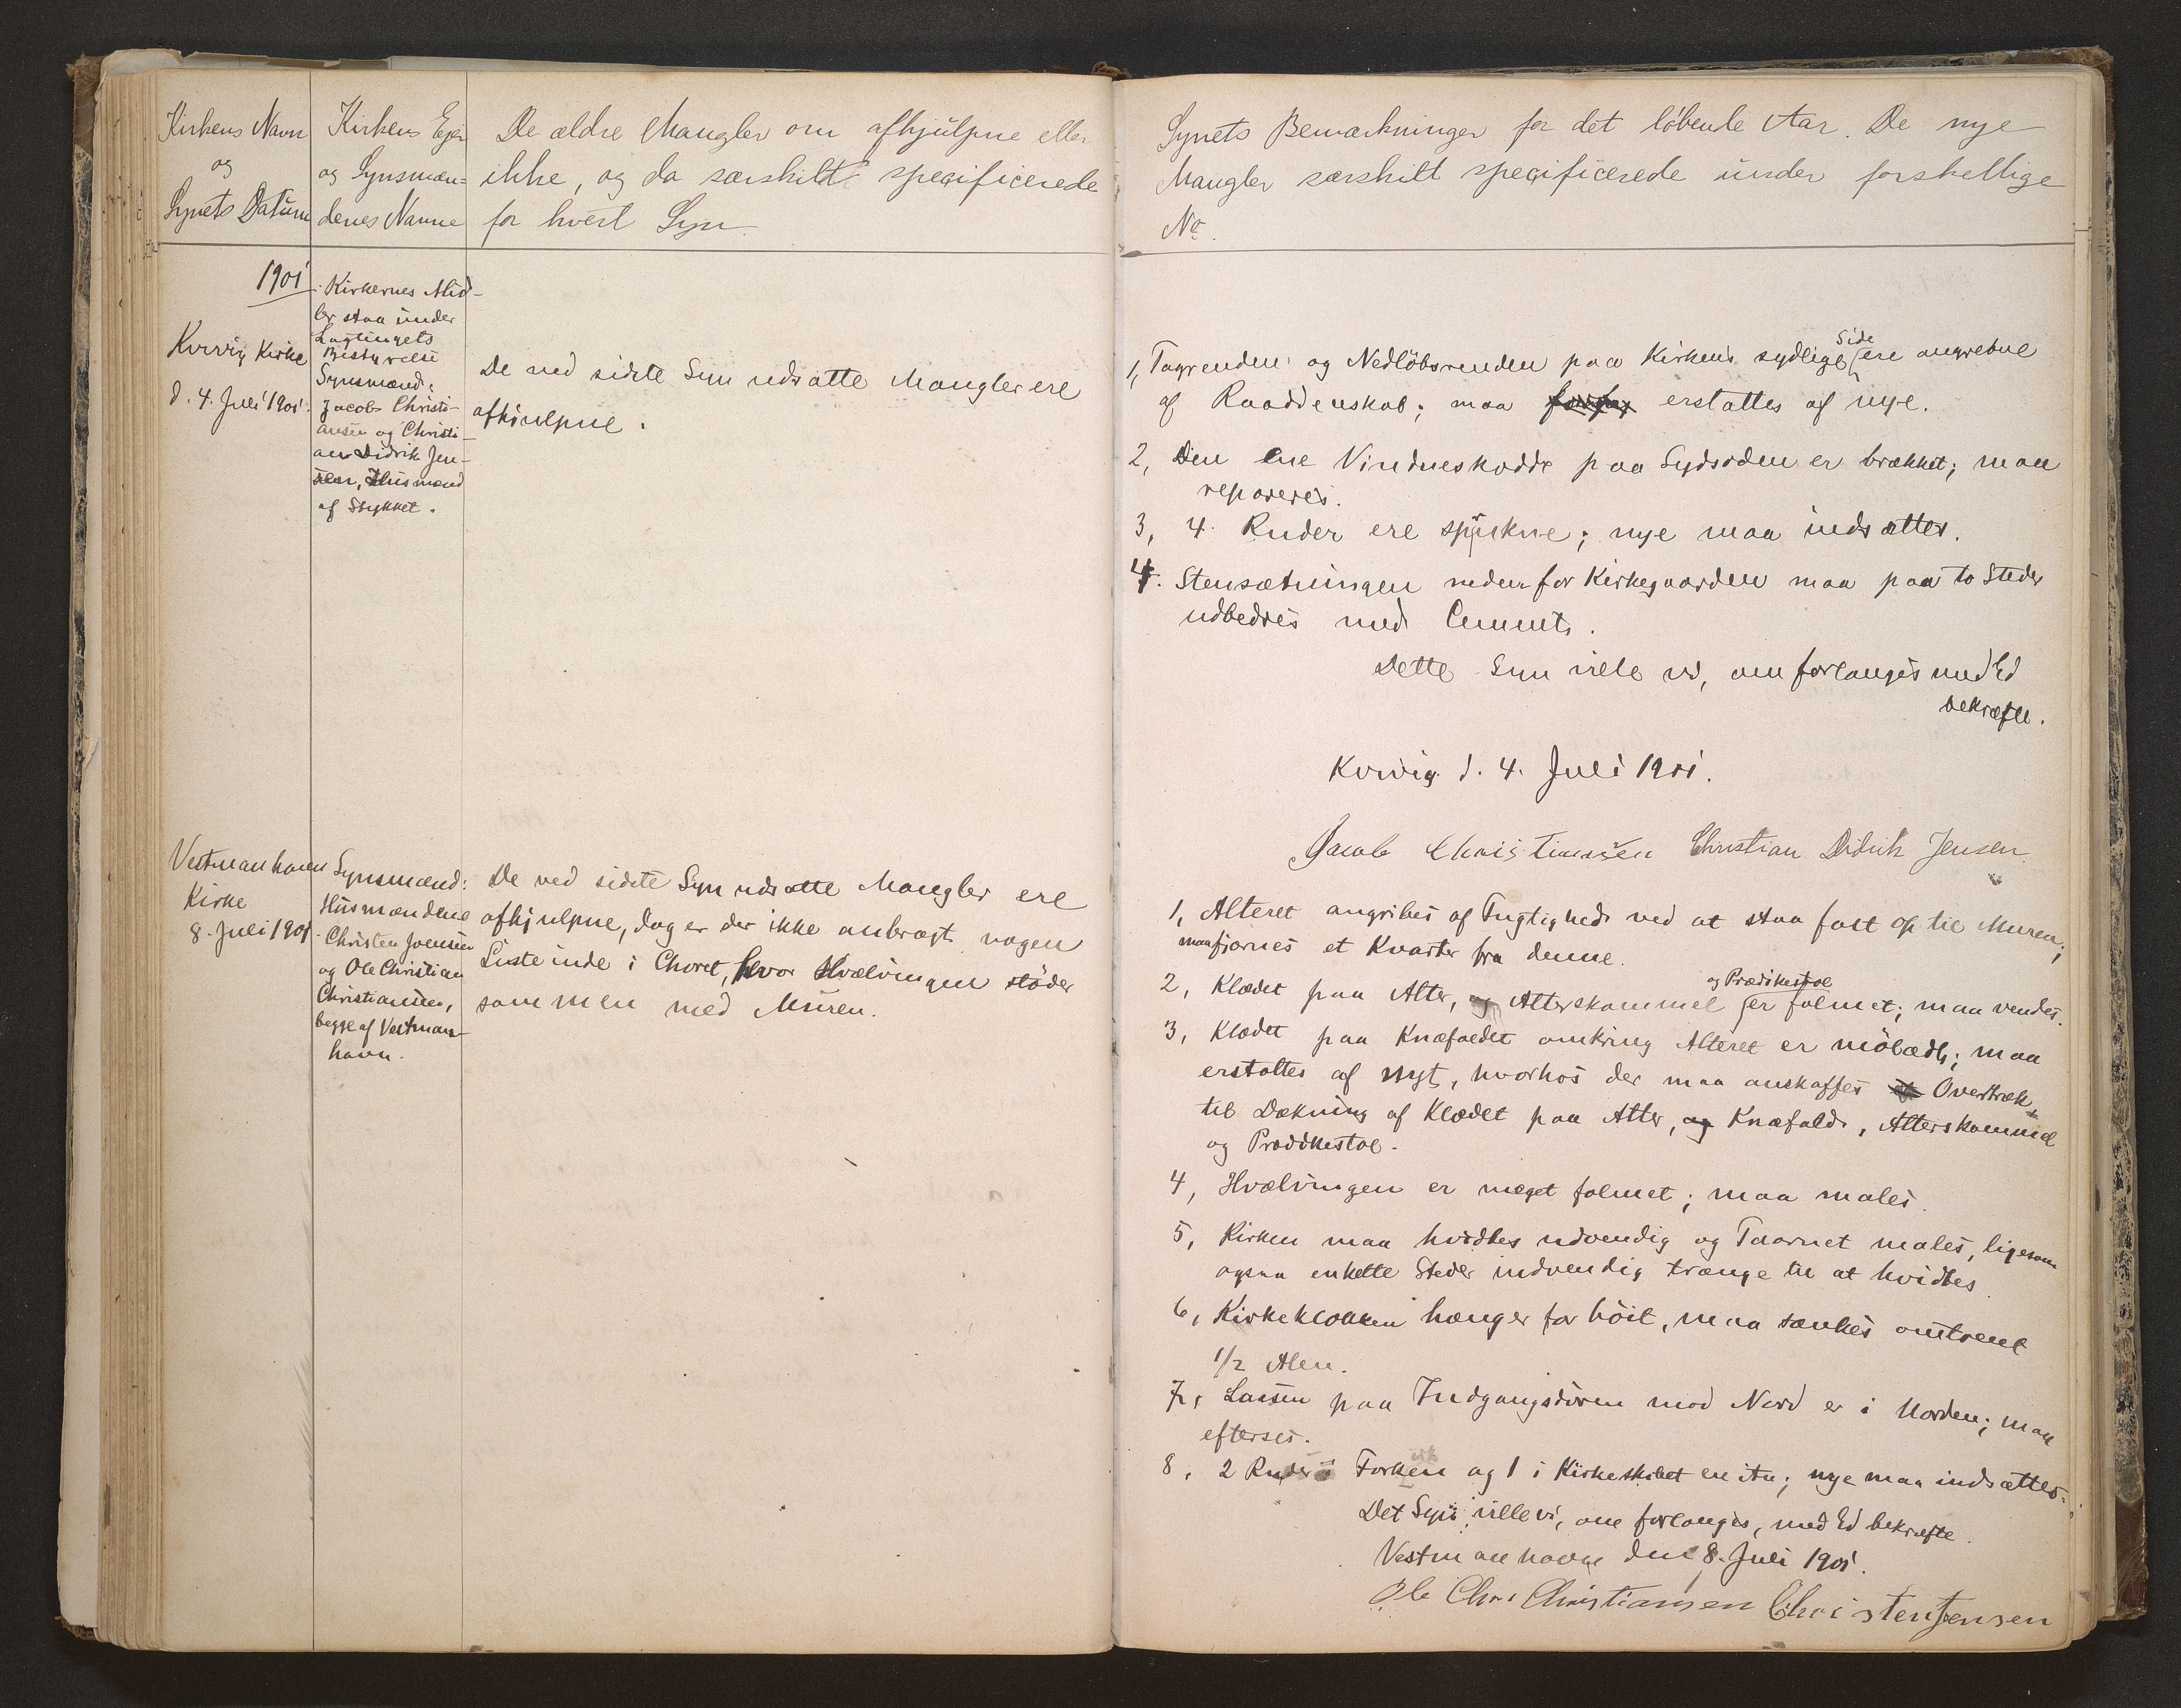 Kirkens Navn
og
Synets Datum
Kirkens Ejer
og Synsmæn-
denes Navne
De ældre Mangler om afhjulpne eller
ikke, og da særskildt specificerede
for hvert Syn.
1901
Kvivig Kirke
d. 4. Juli 1901.
Kirkernes Mid-
ler staa under
Lagtingets
Bestyrelse
Synsmænd:
Jacob Christi-
ansen og Christi-
an Didrik Jen-
sen, Husmænd
af Stykket.
De ved sidste Syn udsatte Mangler ere
afhjulpne.
Vestmanhavn
Kirke
8. Juli 1901.
Synsmænd:
Husmændene
Christen Joensen
og Ole Christian
Christiansen,
begge af Vestman-
havn.
De ved sidste Syn udsatte Mangler ere
afhjulpne, dog er der ikke anbragt nogen
Liste inde i Choret, hvor Hvælvingen støder
sammen med Muren.
Synets Bemærkninger for det løbende Aar. De nye
Mangler særskilt specificerede under forskellige
No.
1, Tagrenden og Nedløbsrenden paa Kirkens sydlige Side ere angrebne
af Raaddenskab; maa erstattes af nye.
2, Den ene Vindueskodde paa Sydsiden er brækket; maa
repareres.
3, 4 Ruder ere sprukne; nye maa indsættes.
4. Stensætningen nedenfor Kirkegaarden maa paa to Steder
udbedres med Cement.
Dette Syn ville vi, om forlanges med Ed
bekræfte.
Kvivig d. 4. Juli 1901.
Jacob Christiansen Christian Didrik Jensen
1, Alteret angribes af Fugtighed ved at staa fast op til Muren;
maa fjærnes et Kvarter fra denne.
2, Klædet paa Alter, og Alterskammel og Prædikestol er falmet; maa vendes.
3, Klædet paa Knæfaldet omkring Alteret er mølædt; maa
erstattes af nyt, hvorhos der maa anskaffes et Overtræk
til Dækning af Klædet paa Alter, og Knæfald, Alterskammel
og Prædikestol.
4, Hvælvingen er meget falmet; maa males.
5, Kirken maa hvidtes udvendig og Taarnet males, ligesom
ogsaa enkelte Steder indvendig trænge til at hvidtes
6, Kirkeklokken hænger for høit, maa sænkes omtrent
1/2 Alen.
7, Laasen paa Indgangsdøren mod Nord er i Uorden; maa
efterses.
8, 2 Ruder i Forken og 1 i Kirkeskibet ere itu; nye maa indsættes.
Det Syn ville vi, om forlanges, med Ed bekræfte.
Vestmanhavn den 8. Juli 1901.
Ole Chr. Christiansen Christen Joensen